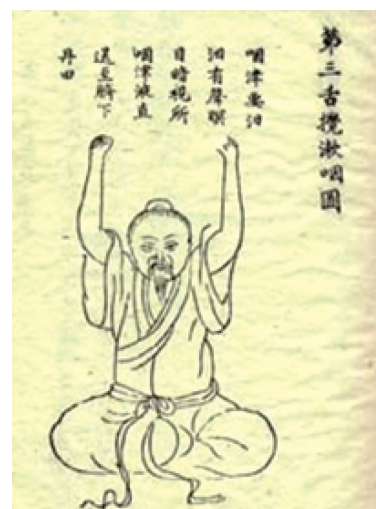 第三舌攪漱咽圖
咽津要汨
汨有聲瞑
目時視所
咽津液直
送至臍下
丹田